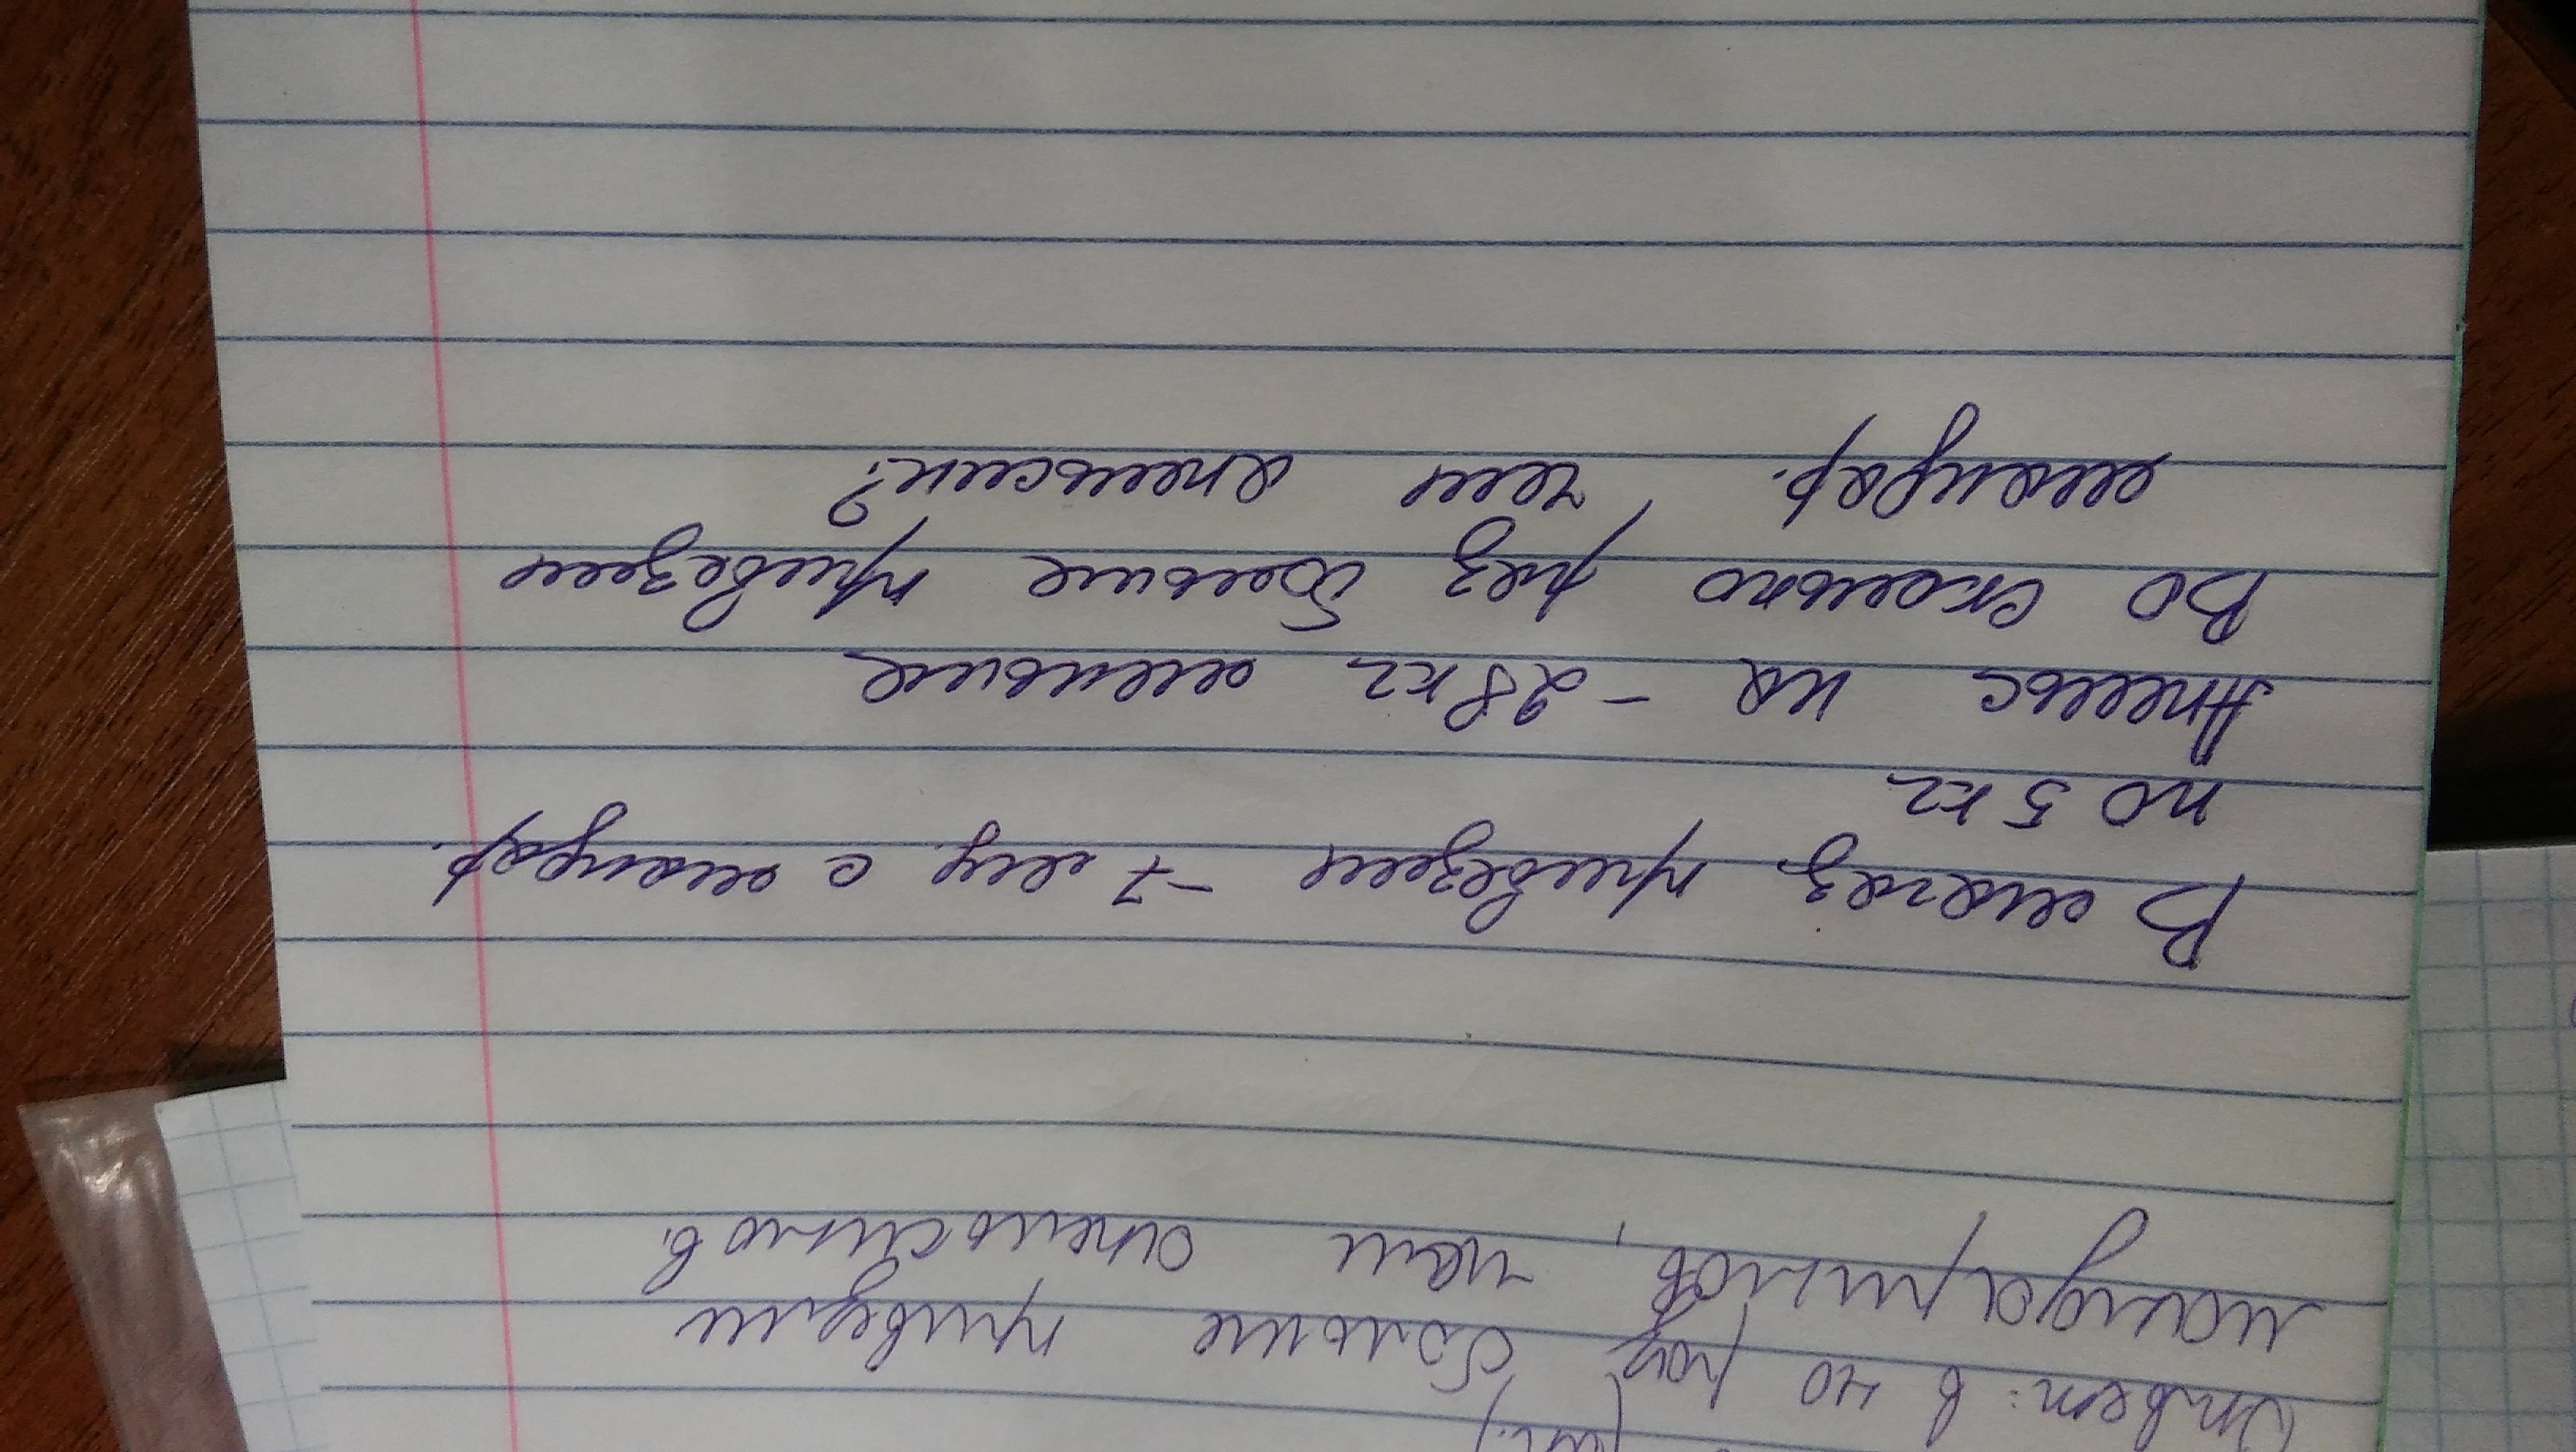 Ответ: в 40 раз больше привезли
мандаринов, чем апельсинов.
В магаз. привезли - 7 ящ. с мандар.
по 5 кг
Апельс на - 28 кг меньше
Во сколько раз больше привезли
мандар. , чем апельсин?